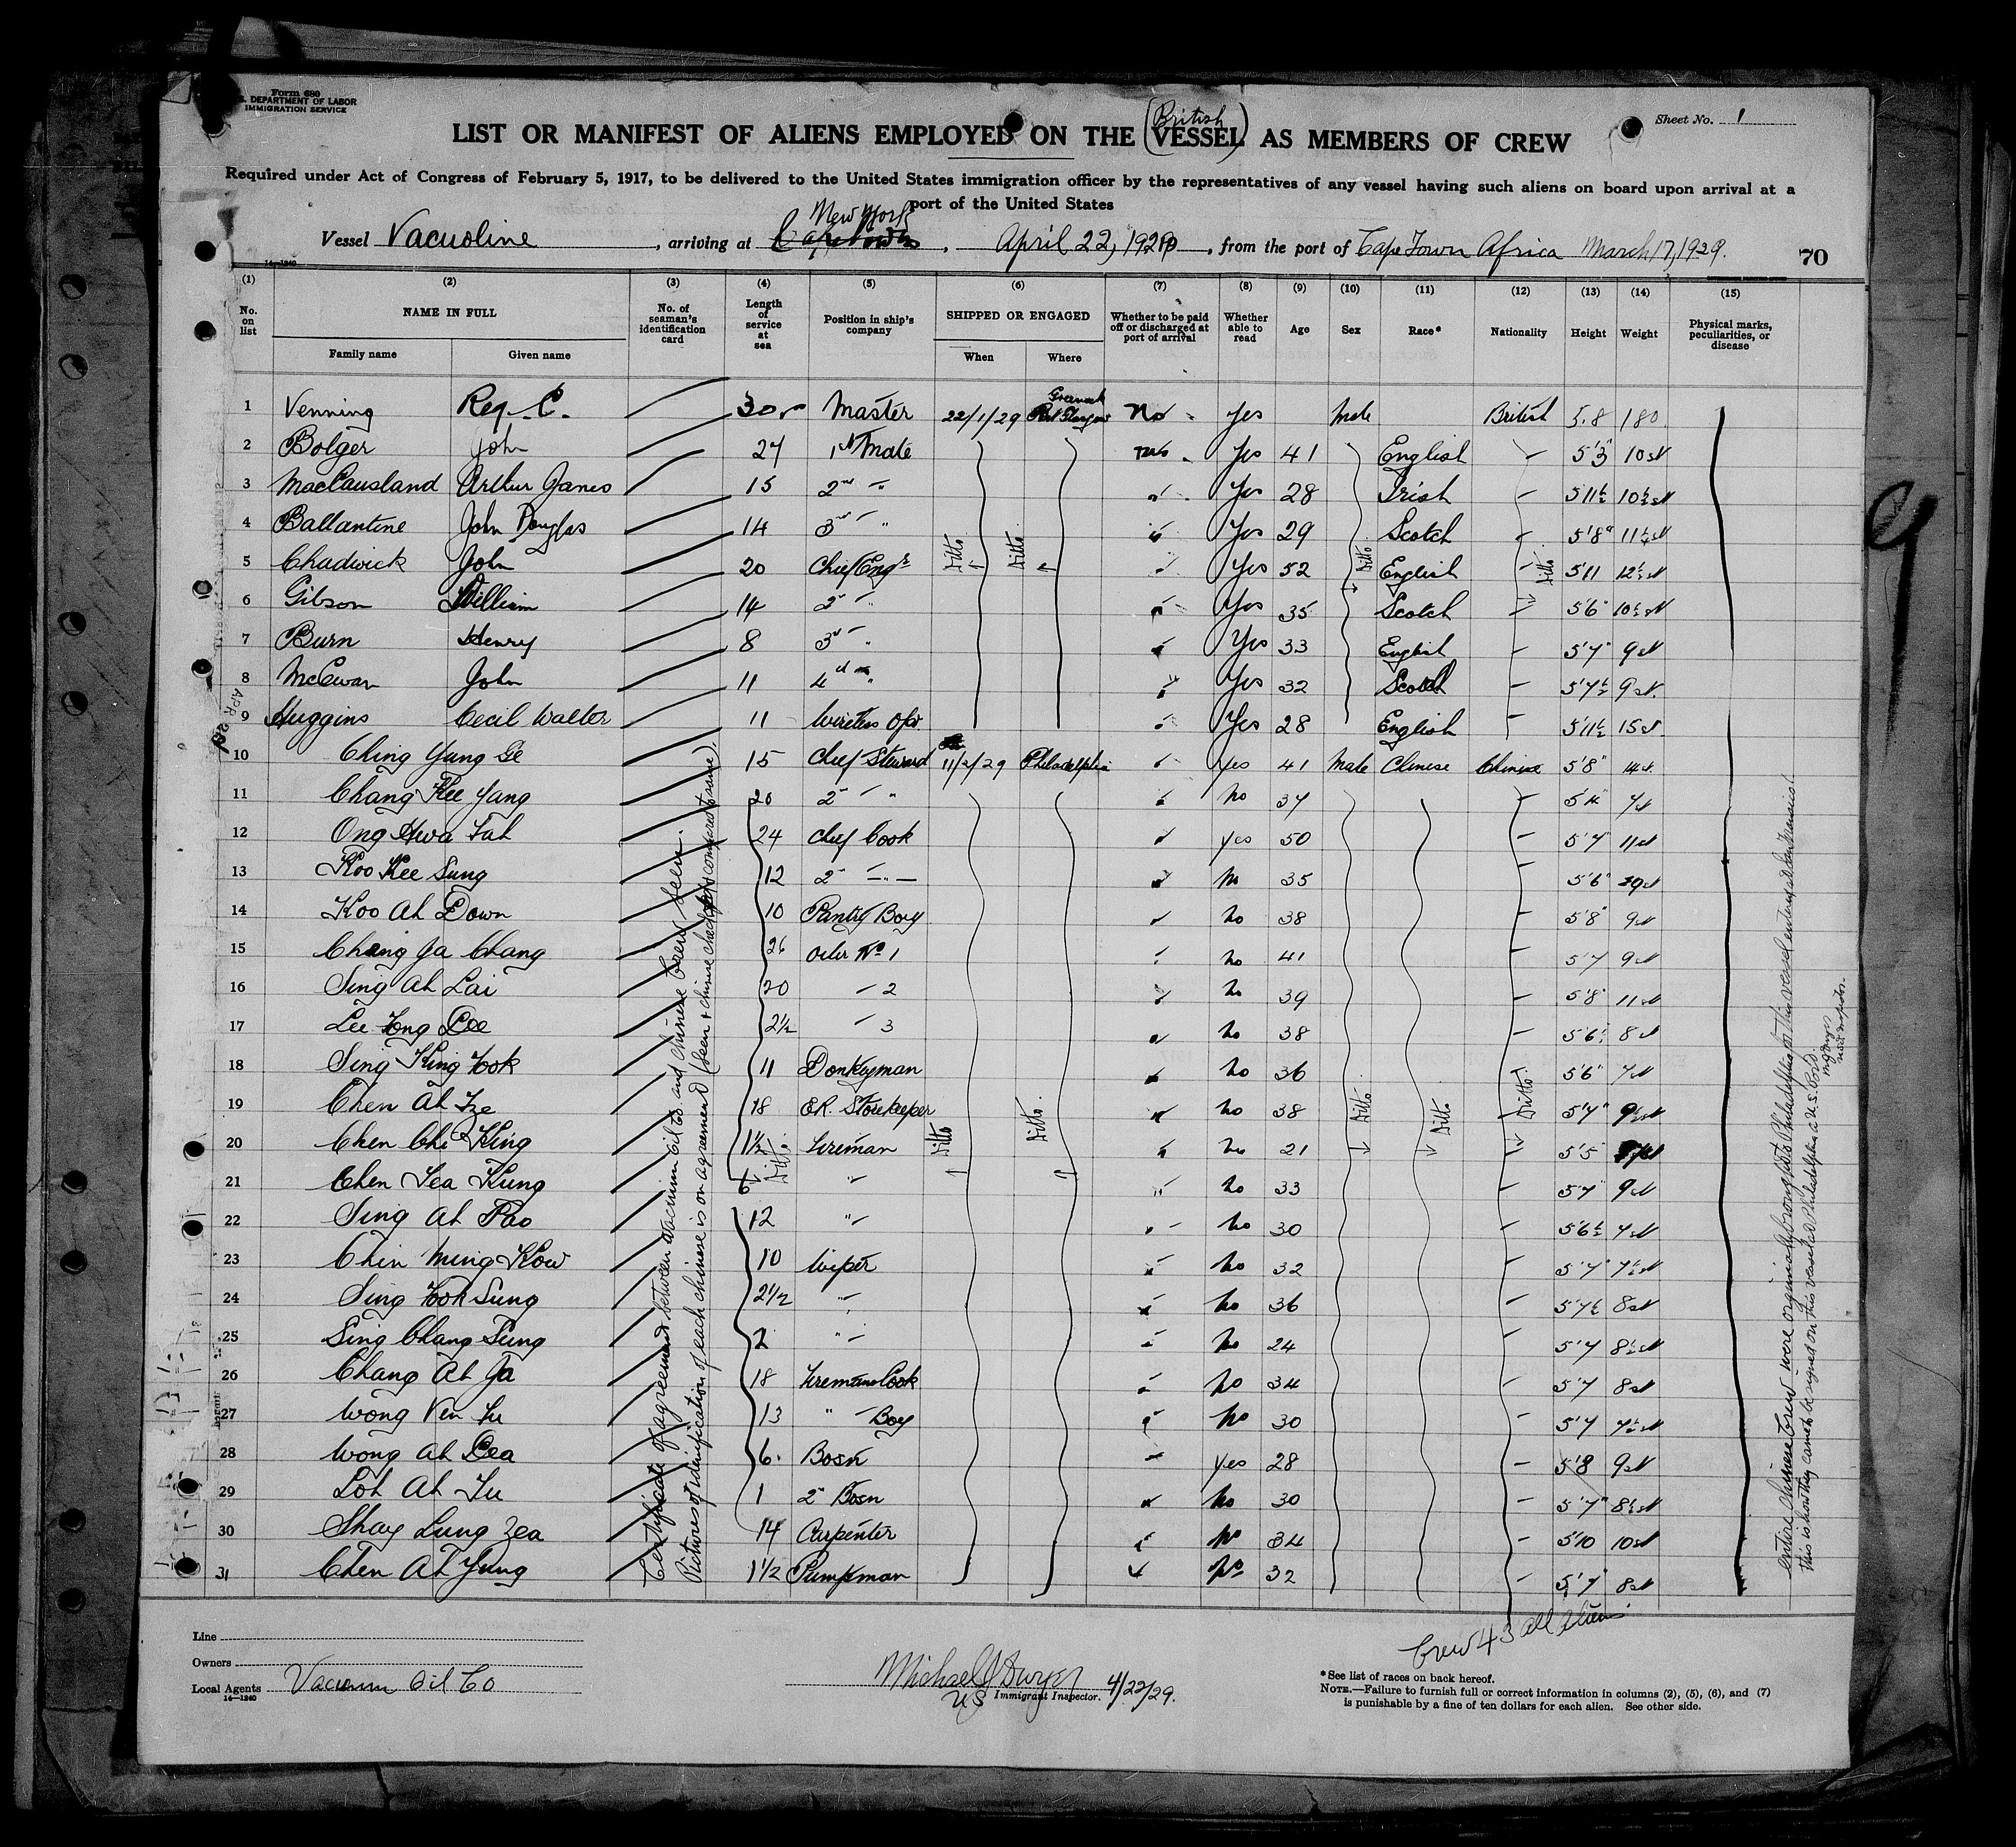 Form 680
U.S. DEPARTMENT OF LABOR
IMMIGRATION SERVICE
Sheet No. 1
(British)
LIST OR MANIFEST OF ALIENS EMPLOYED ON THE VESSEL AS MEMBERS OF CREW
Required under Act of Congress of February 5, 1917, to be delivered to the United States immigration officer by the representatives of any vessel having such aliens on board upon arrival at a
port of the United States
New York
Vessel Vacuoline, arriving at Cape Town, April 22, 1929, from the port of Cape Town Africa March 17, 1929.
70
14—1240
(1) (2) (3) (4) (5) (6) (7) (8) (9) (10) (11) (12) (13) (14) (15)
No. on list NAME IN FULL No. of seaman's identification card Length of service at sea Position in ship's company SHIPPED OR ENGAGED Whether to be paid off or discharged at port of arrival Whether able to read Age Sex Race* Nationality Height Weight Physical marks, peculiarities, or disease
Family name Given name When Where
1 Venning Reg. C. 30 Master 22/1/29 Greenock Port Glasgow No Yes Male British 5.8 180
2 Bolger John 27 1st Mate No Yes 41 English 5'3" 10 st
3 MacCausland Arthur James 15 2nd " Yes 28 Irish 5'11½ 10½ st
4 Ballantine John Douglas 14 3rd " Yes 29 Scotch 5'8" 11½ st
5 Chadwick John 20 Chief Engr Ditto Ditto Yes 52 Ditto English Ditto 5'11 12½ st
6 Gibson William 14 2nd " Yes 35 Scotch 5'6" 10½ st
7 Burn Henry 8 3rd " Yes 33 English 5'7" 9 st
8 McEwan John 11 4th " Yes 32 Scotch 5'7½ 9 st.
9 Huggins Cecil Walter 11 Wireless Opr. Yes 28 English 5'11½ 15 st
10 Ching Yung Se 15 Chief Steward 11/2/29 Philadelphia Yes 41 Male Chinese Chinese 5'8" 14 st.
11 Chang Kee Yang 20 2nd " No 37 5'4" 7 st
12 Ong Hwa Fah 24 Chief Cook Yes 50 5'7" 11 st
13 Koo Kee Sung 12 2nd " No 35 5'6" 9 st
14 Koo Ah Down 10 Pantry Boy No 38 5'8" 9 st
15 Chang Ja Chang 26 Oiler No 1 No 41 5'7 9 st
16 Sing Ah Lai 20 " 2 No 39 5'8" 11 st
17 Lee Fong Dee 2½ " 3 No 38 5'6½ 8 st
18 Sing King Fook 11 Donkeyman No 36 5'6" 7 st
19 Chen Ah Sze 18 E.R. Storekeeper No 38 5'7" 9½ st
20 Chen Chi King 1½ Fireman Ditto Ditto No 21 Ditto Ditto Ditto 5'5
21 Chen Sea Kung 6 " No 33 5'7" 9 st
22 Sing Ah Pao 12 " No 30 5'6½ 7 st
23 Chin Ming Kow 10 Wiper No 32 5'7" 7½ st
24 Sing Fook Sung 2½ " No 36 5'7½ 8 st
25 Sing Chang Sung 2 " No 24 5'7 8½ st
26 Chang Ah Ja 18 Firemans Cook No 34 5'7 8 st
27 Wong Ven Fu 13 " Boy No 30 5'7 7½ st
28 Wong Ah Dea 6 Bosn Yes 28 5'8 9 st
29 Loh Ah Fu 1 2nd Bosn No 30 5'7" 8½ st
30 Shay Lung Zea 14 Carpenter No 34 5'10 10 st
31 Chen Ah Yung 1½ Pumpman No 32 5'7" 8 st
Certificate of agreement between Vacuum Oil Co and Chinese Crew seen.
Pictures of identification of each chinese is on agreement (seen & chinese checked & compared to same).
entire Chinese Crew were originally brought to Philadelphia pt this vessel entery at San Francisco
This is how they came to be signed on this vessel at Philadelphia a U.S. Port.
Crew 43 all Aliens
Line
Owners
Local Agents Vacuum Oil Co
14—1240
Michael J Dwyer 4/22/29.
US Immigrant Inspector.
*See list of races on back hereof.
NOTE.—Failure to furnish full or correct information in columns (2), (5), (6), and (7)
is punishable by a fine of ten dollars for each alien. See other side.